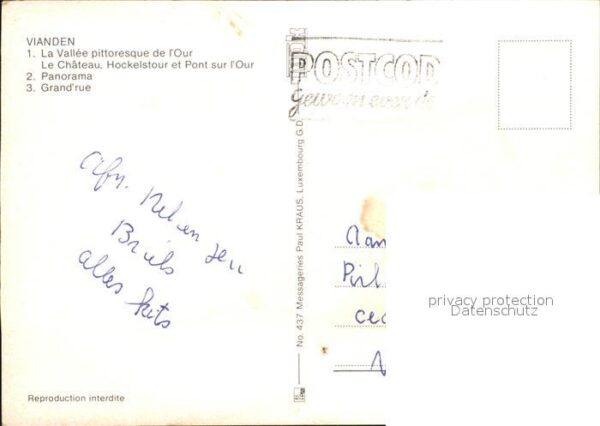 VIANDEN
1. La Vallée pittoresque de l'Our
Le Château, Hockelstour et Pont sur l'Our
2. Panorama
3. Grand'rue
POSTCOD
gewoon even de
Afn.
alles kits
No. 437 Messageries Paul KRAUS, Luxembourg G.D.
Aan
privacy protection
Datenschutz
Reproduction interdite